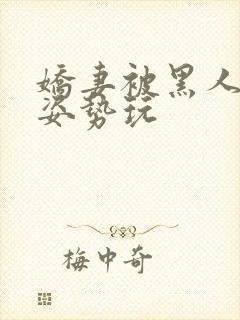 嬌妻被黑人
姿势玩
梅中奇